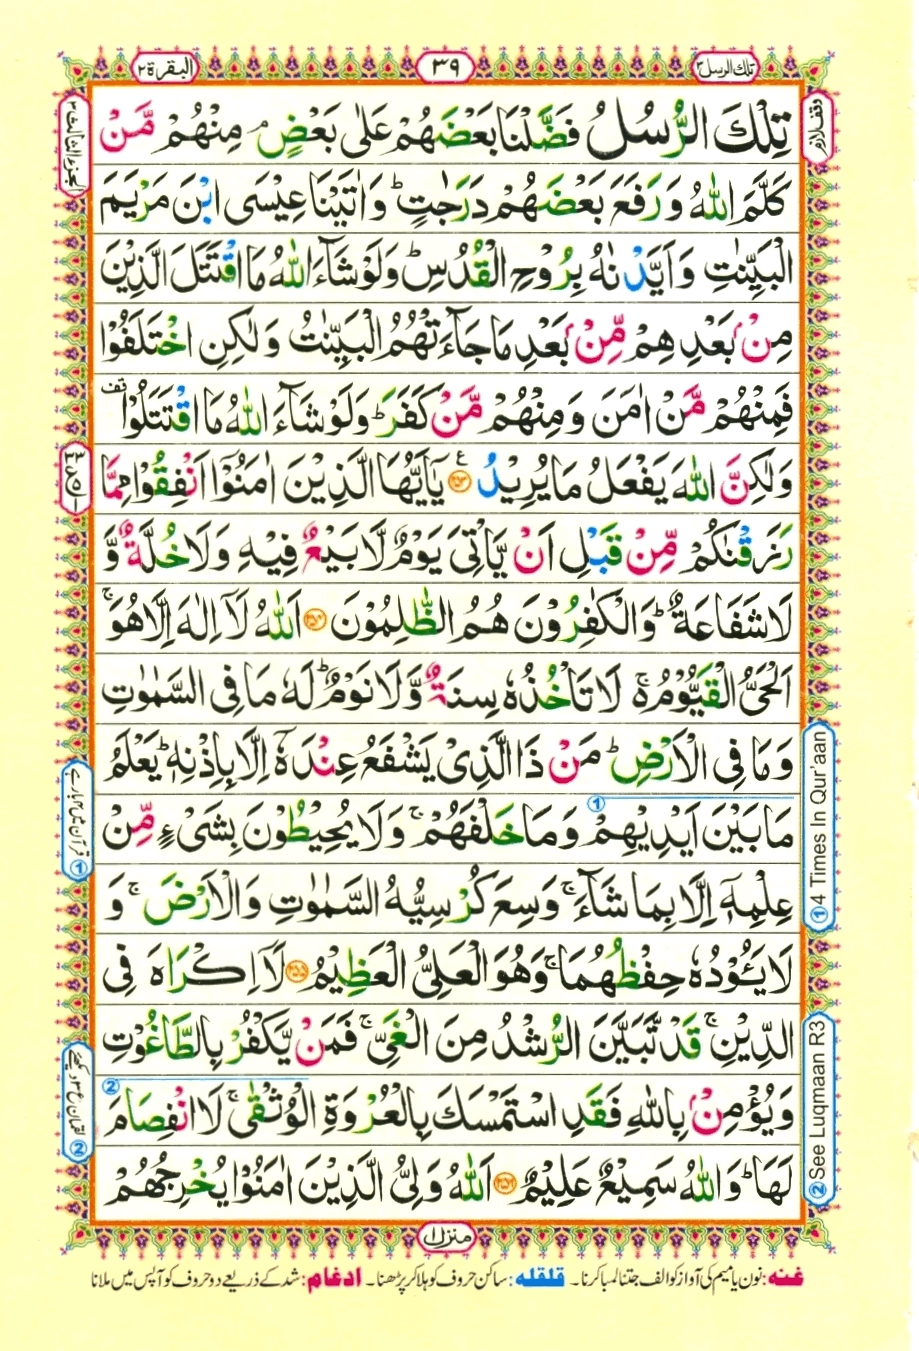 البقرة ٢
٣٩
تلك الرسل ٣
وقف لازم
الجزء الثالث ٣
تِلْكَ الرُّسُلُ فَضَّلْنَا بَعْضَهُمْ عَلٰى بَعْضٍ ۘ مِنْهُمْ مَّنْ
كَلَّمَ اللّٰهُ وَرَفَعَ بَعْضَهُمْ دَرَجٰتٍ ؕ وَاٰتَيْنَا عِيْسَى ابْنَ مَرْيَمَ
الْبَيِّنٰتِ وَاَيَّدْنٰهُ بِرُوْحِ الْقُدُسِ ؕ وَلَوْ شَآءَ اللّٰهُ مَا اقْتَتَلَ الَّذِيْنَ
مِنْۢ بَعْدِهِمْ مِّنْۢ بَعْدِ مَا جَآءَتْهُمُ الْبَيِّنٰتُ وَلٰكِنِ اخْتَلَفُوْا
فَمِنْهُمْ مَّنْ اٰمَنَ وَمِنْهُمْ مَّنْ كَفَرَ ؕ وَلَوْ شَآءَ اللّٰهُ مَا اقْتَتَلُوْا قف
وَلٰكِنَّ اللّٰهَ يَفْعَلُ مَا يُرِيْدُ ﴿۲۵۳﴾ يٰۤاَيُّهَا الَّذِيْنَ اٰمَنُوْۤا اَنْفِقُوْا مِمَّا
رَزَقْنٰكُمْ مِّنْ قَبْلِ اَنْ يَّاْتِىَ يَوْمٌ لَّا بَيْعٌ فِيْهِ وَلَا خُلَّةٌ وَّ
لَا شَفَاعَةٌ ؕ وَالْكٰفِرُوْنَ هُمُ الظّٰلِمُوْنَ ﴿۲۵۴﴾ اَللّٰهُ لَاۤ اِلٰهَ اِلَّا هُوَ ۚ
اَلْحَىُّ الْقَيُّوْمُ ۚ۬ لَا تَاْخُذُهٗ سِنَةٌ وَّلَا نَوْمٌ ؕ لَهٗ مَا فِى السَّمٰوٰتِ
وَمَا فِى الْاَرْضِ ؕ مَنْ ذَا الَّذِىْ يَشْفَعُ عِنْدَهٗۤ اِلَّا بِاِذْنِهٖ ؕ يَعْلَمُ
مَا بَيْنَ اَيْدِيْهِمْ وَمَا خَلْفَهُمْ ۚ وَلَا يُحِيْطُوْنَ بِشَىْءٍ مِّنْ
عِلْمِهٖۤ اِلَّا بِمَا شَآءَ ۚ وَسِعَ كُرْسِيُّهُ السَّمٰوٰتِ وَالْاَرْضَ ۚ وَ
لَا يَـُٔوْدُهٗ حِفْظُهُمَا ۚ وَهُوَ الْعَلِىُّ الْعَظِيْمُ ﴿۲۵۵﴾ لَاۤ اِكْرَاهَ فِى
الدِّيْنِ ۚ قَدْ تَّبَيَّنَ الرُّشْدُ مِنَ الْغَىِّ ۚ فَمَنْ يَّكْفُرْ بِالطَّاغُوْتِ
وَيُؤْمِنْۢ بِاللّٰهِ فَقَدِ اسْتَمْسَكَ بِالْعُرْوَةِ الْوُثْقٰى ۚ لَا انْفِصَامَ
لَهَا ؕ وَاللّٰهُ سَمِيْعٌ عَلِيْمٌ ﴿۲۵۶﴾ اَللّٰهُ وَلِىُّ الَّذِيْنَ اٰمَنُوْا يُخْرِجُهُمْ
① 4 Times In Qur'aan
② See Luqmaan R3
① قرآن میں ۴ بارہے
② لقمان رع ۳ دیکھئے
منزل ١
غنه: نون یا میم کی آواز کو الف جتنا لمبا کرنا۔ قلقله: ساکن حروف کو ہلا کر پڑھنا۔ ادغام: شد کے ذریعے دو حروف کو آپس میں ملانا